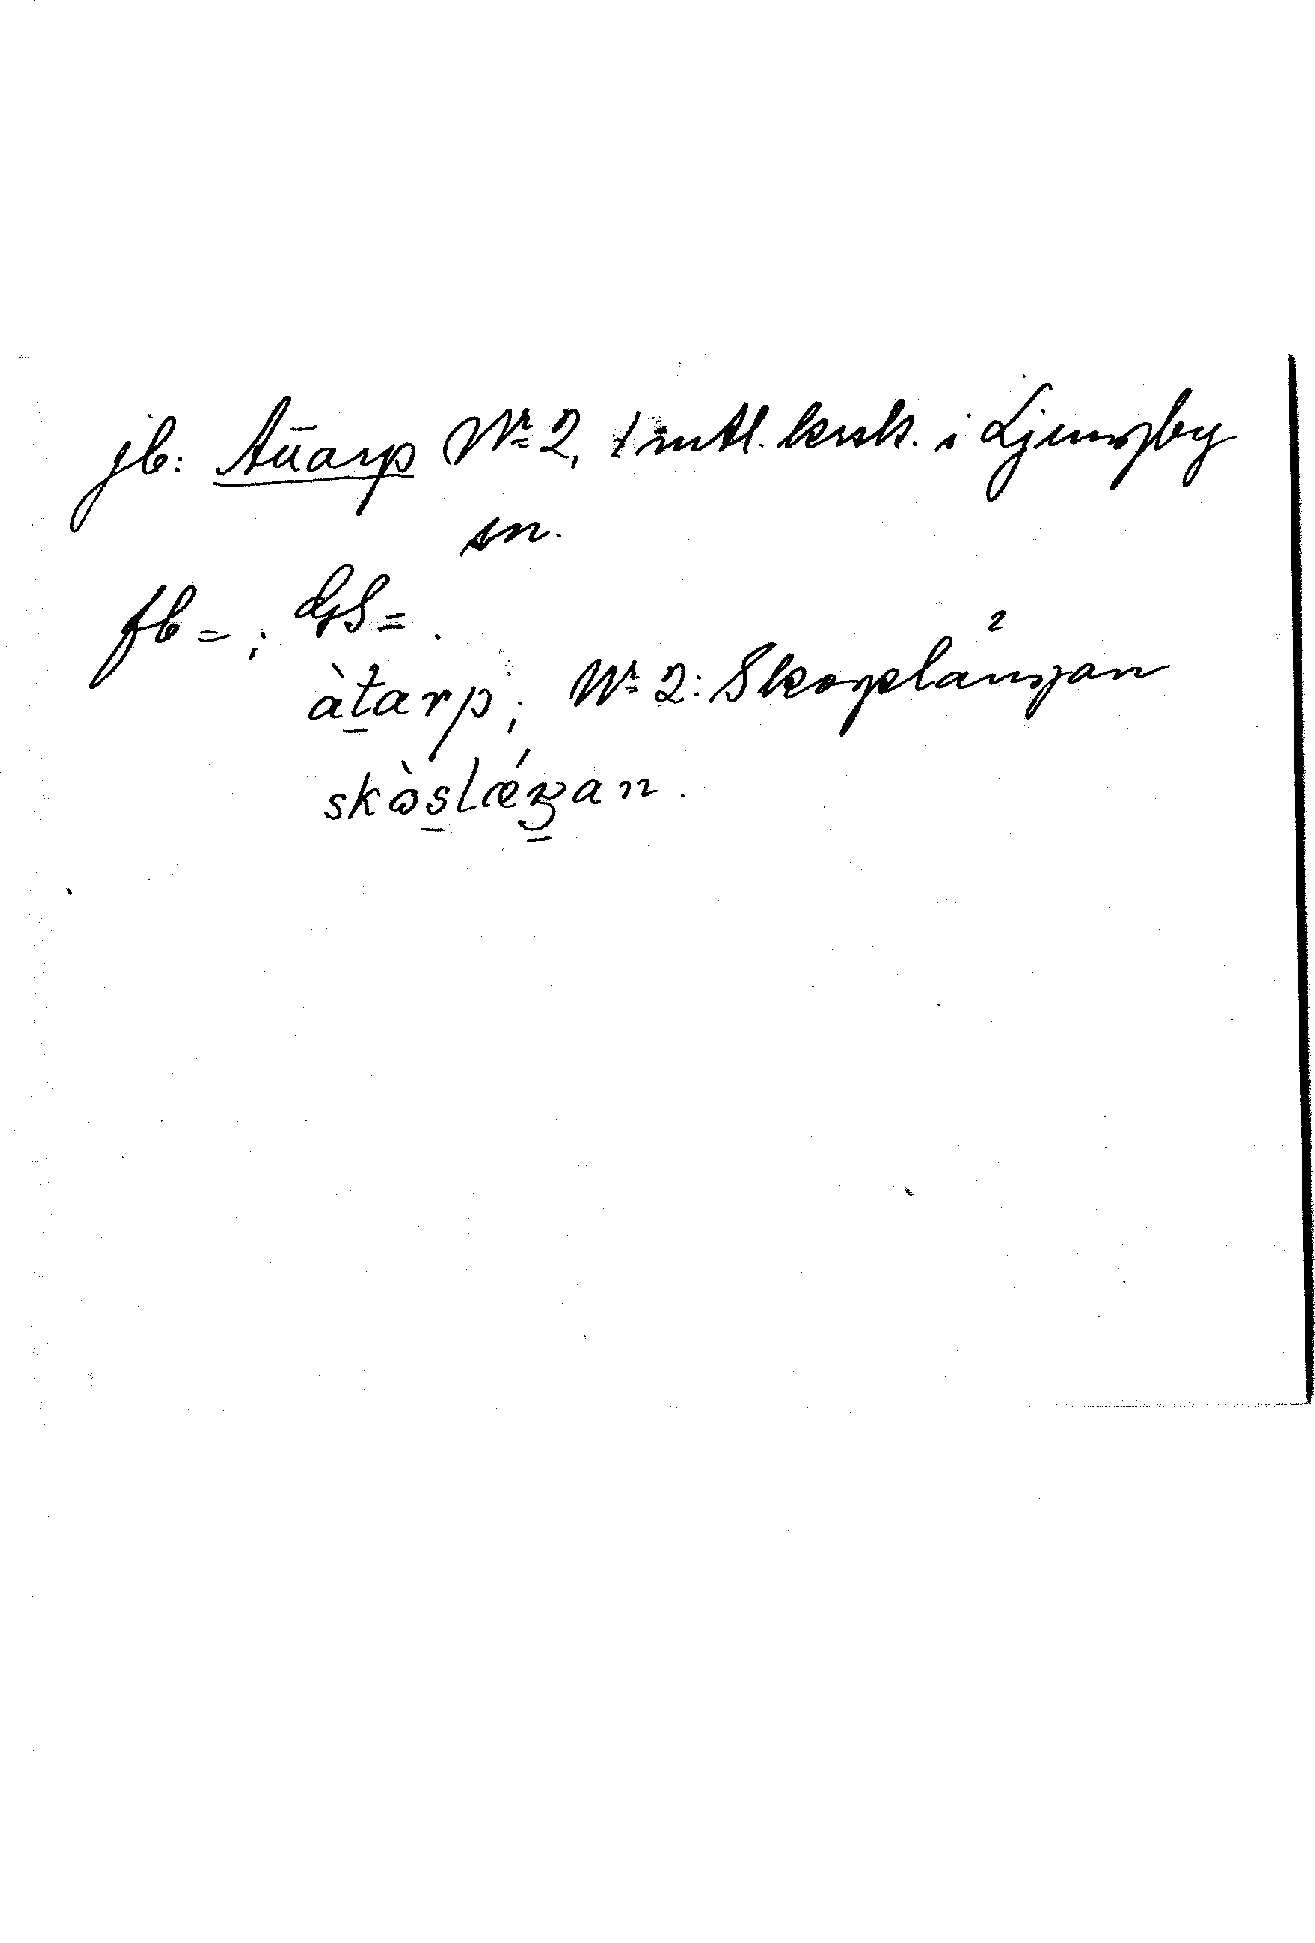 jb: Attarp Nr 2, 1 mtl. krsk. i Ljungby
sn.
fb = ; GS = .
àtarp; Nr 2: Skogslängan
skòslǽŋan.